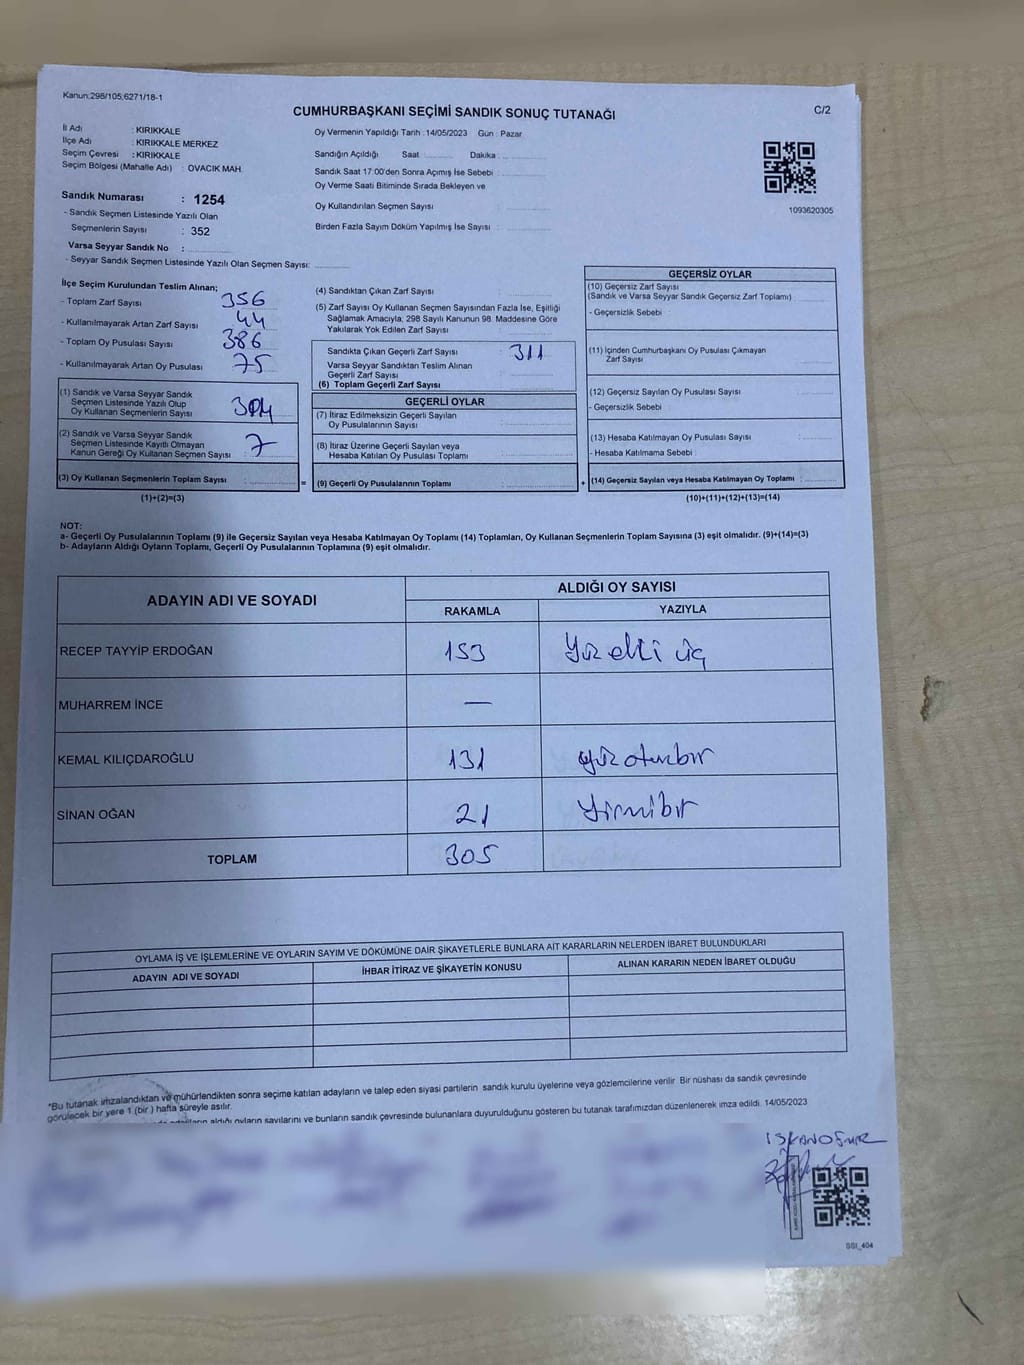 Kanun:298/105;6271/18-1
CUMHURBAŞKANI SEÇİMİ SANDIK SONUÇ TUTANAĞI
C/2
İl Adı : KIRIKKALE
İlçe Adı : KIRIKKALE MERKEZ
Seçim Çevresi : KIRIKKALE
Seçim Bölgesi (Mahalle Adı) : OVACIK MAH.
Sandık Numarası : 1254
- Sandık Seçmen Listesinde Yazılı Olan
Seçmenlerin Sayısı : 352
Varsa Seyyar Sandık No :
- Seyyar Sandık Seçmen Listesinde Yazılı Olan Seçmen Sayısı:
Oy Vermenin Yapıldığı Tarih :14/05/2023 Gün : Pazar
Sandığın Açıldığı Saat Dakika :
Sandık Saat 17:00'den Sonra Açımış İse Sebebi :
Oy Verme Saati Bitiminde Sırada Bekleyen ve
Oy Kullandırılan Seçmen Sayısı :
Birden Fazla Sayım Döküm Yapılmış İse Sayısı :
1093620305
İlçe Seçim Kurulundan Teslim Alınan;
- Toplam Zarf Sayısı 356
- Kullanılmayarak Artan Zarf Sayısı 44
- Toplam Oy Pusulası Sayısı 386
- Kullanılmayarak Artan Oy Pusulası 75
(1) Sandık ve Varsa Seyyar Sandık
Seçmen Listesinde Yazılı Olup
Oy Kullanan Seçmenlerin Sayısı 304
(2) Sandık ve Varsa Seyyar Sandık
Seçmen Listesinde Kayıtlı Olmayan
Kanun Gereği Oy Kullanan Seçmen Sayısı 7
(3) Oy Kullanan Seçmenlerin Toplam Sayısı :
(1)+(2)=(3)
(4) Sandıktan Çıkan Zarf Sayısı :
(5) Zarf Sayısı Oy Kullanan Seçmen Sayısından Fazla İse, Eşitliği
Sağlamak Amacıyla; 298 Sayılı Kanunun 98. Maddesine Göre
Yakılarak Yok Edilen Zarf Sayısı
Sandıkta Çıkan Geçerli Zarf Sayısı : 311
Varsa Seyyar Sandıktan Teslim Alınan
Geçerli Zarf Sayısı
(6) Toplam Geçerli Zarf Sayısı
GEÇERLİ OYLAR
(7) İtiraz Edilmeksizin Geçerli Sayılan
Oy Pusulalarının Sayısı
(8) İtiraz Üzerine Geçerli Sayılan veya
Hesaba Katılan Oy Pusulası Toplamı
= (9) Geçerli Oy Pusulalarının Toplamı :
GEÇERSİZ OYLAR
(10) Geçersiz Zarf Sayısı
(Sandık ve Varsa Seyyar Sandık Geçersiz Zarf Toplamı) :
- Geçersizlik Sebebi :
(11) İçinden Cumhurbaşkanı Oy Pusulası Çıkmayan
Zarf Sayısı
(12) Geçersiz Sayılan Oy Pusulası Sayısı
- Geçersizlik Sebebi
(13) Hesaba Katılmayan Oy Pusulası Sayısı :
- Hesaba Katılmama Sebebi :
+ (14) Geçersiz Sayılan veya Hesaba Katılmayan Oy Toplamı :
(10)+(11)+(12)+(13)=(14)
NOT:
a- Geçerli Oy Pusulalarının Toplamı (9) ile Geçersiz Sayılan veya Hesaba Katılmayan Oy Toplamı (14) Toplamları, Oy Kullanan Seçmenlerin Toplam Sayısına (3) eşit olmalıdır. (9)+(14)=(3)
b- Adayların Aldığı Oyların Toplamı, Geçerli Oy Pusulalarının Toplamına (9) eşit olmalıdır.
ADAYIN ADI VE SOYADI
ALDIĞI OY SAYISI
RAKAMLA YAZIYLA
RECEP TAYYİP ERDOĞAN 153 Yüz elli üç
MUHARREM İNCE —
KEMAL KILIÇDAROĞLU 131 yüzotuzbir
SİNAN OĞAN 21 Yirmibir
TOPLAM 305
OYLAMA İŞ VE İŞLEMLERİNE VE OYLARIN SAYIM VE DÖKÜMÜNE DAİR ŞİKAYETLERLE BUNLARA AİT KARARLARIN NELERDEN İBARET BULUNDUKLARI
ADAYIN ADI VE SOYADI İHBAR İTİRAZ VE ŞİKAYETİN KONUSU ALINAN KARARIN NEDEN İBARET OLDUĞU
*Bu tutanak imzalandıktan ve mühürlendikten sonra seçime katılan adayların ve talep eden siyasi partilerin sandık kurulu üyelerine veya gözlemcilerine verilir Bir nüshası da sandık çevresinde
görülecek bir yere 1 (bir ) hafta süreyle asılır.
aldığı oyların sayılarını ve bunların sandık çevresinde bulunanlara duyurulduğunu gösteren bu tutanak tarafımızdan düzenlenerek imza edildi. 14/05/2023
SSI_404